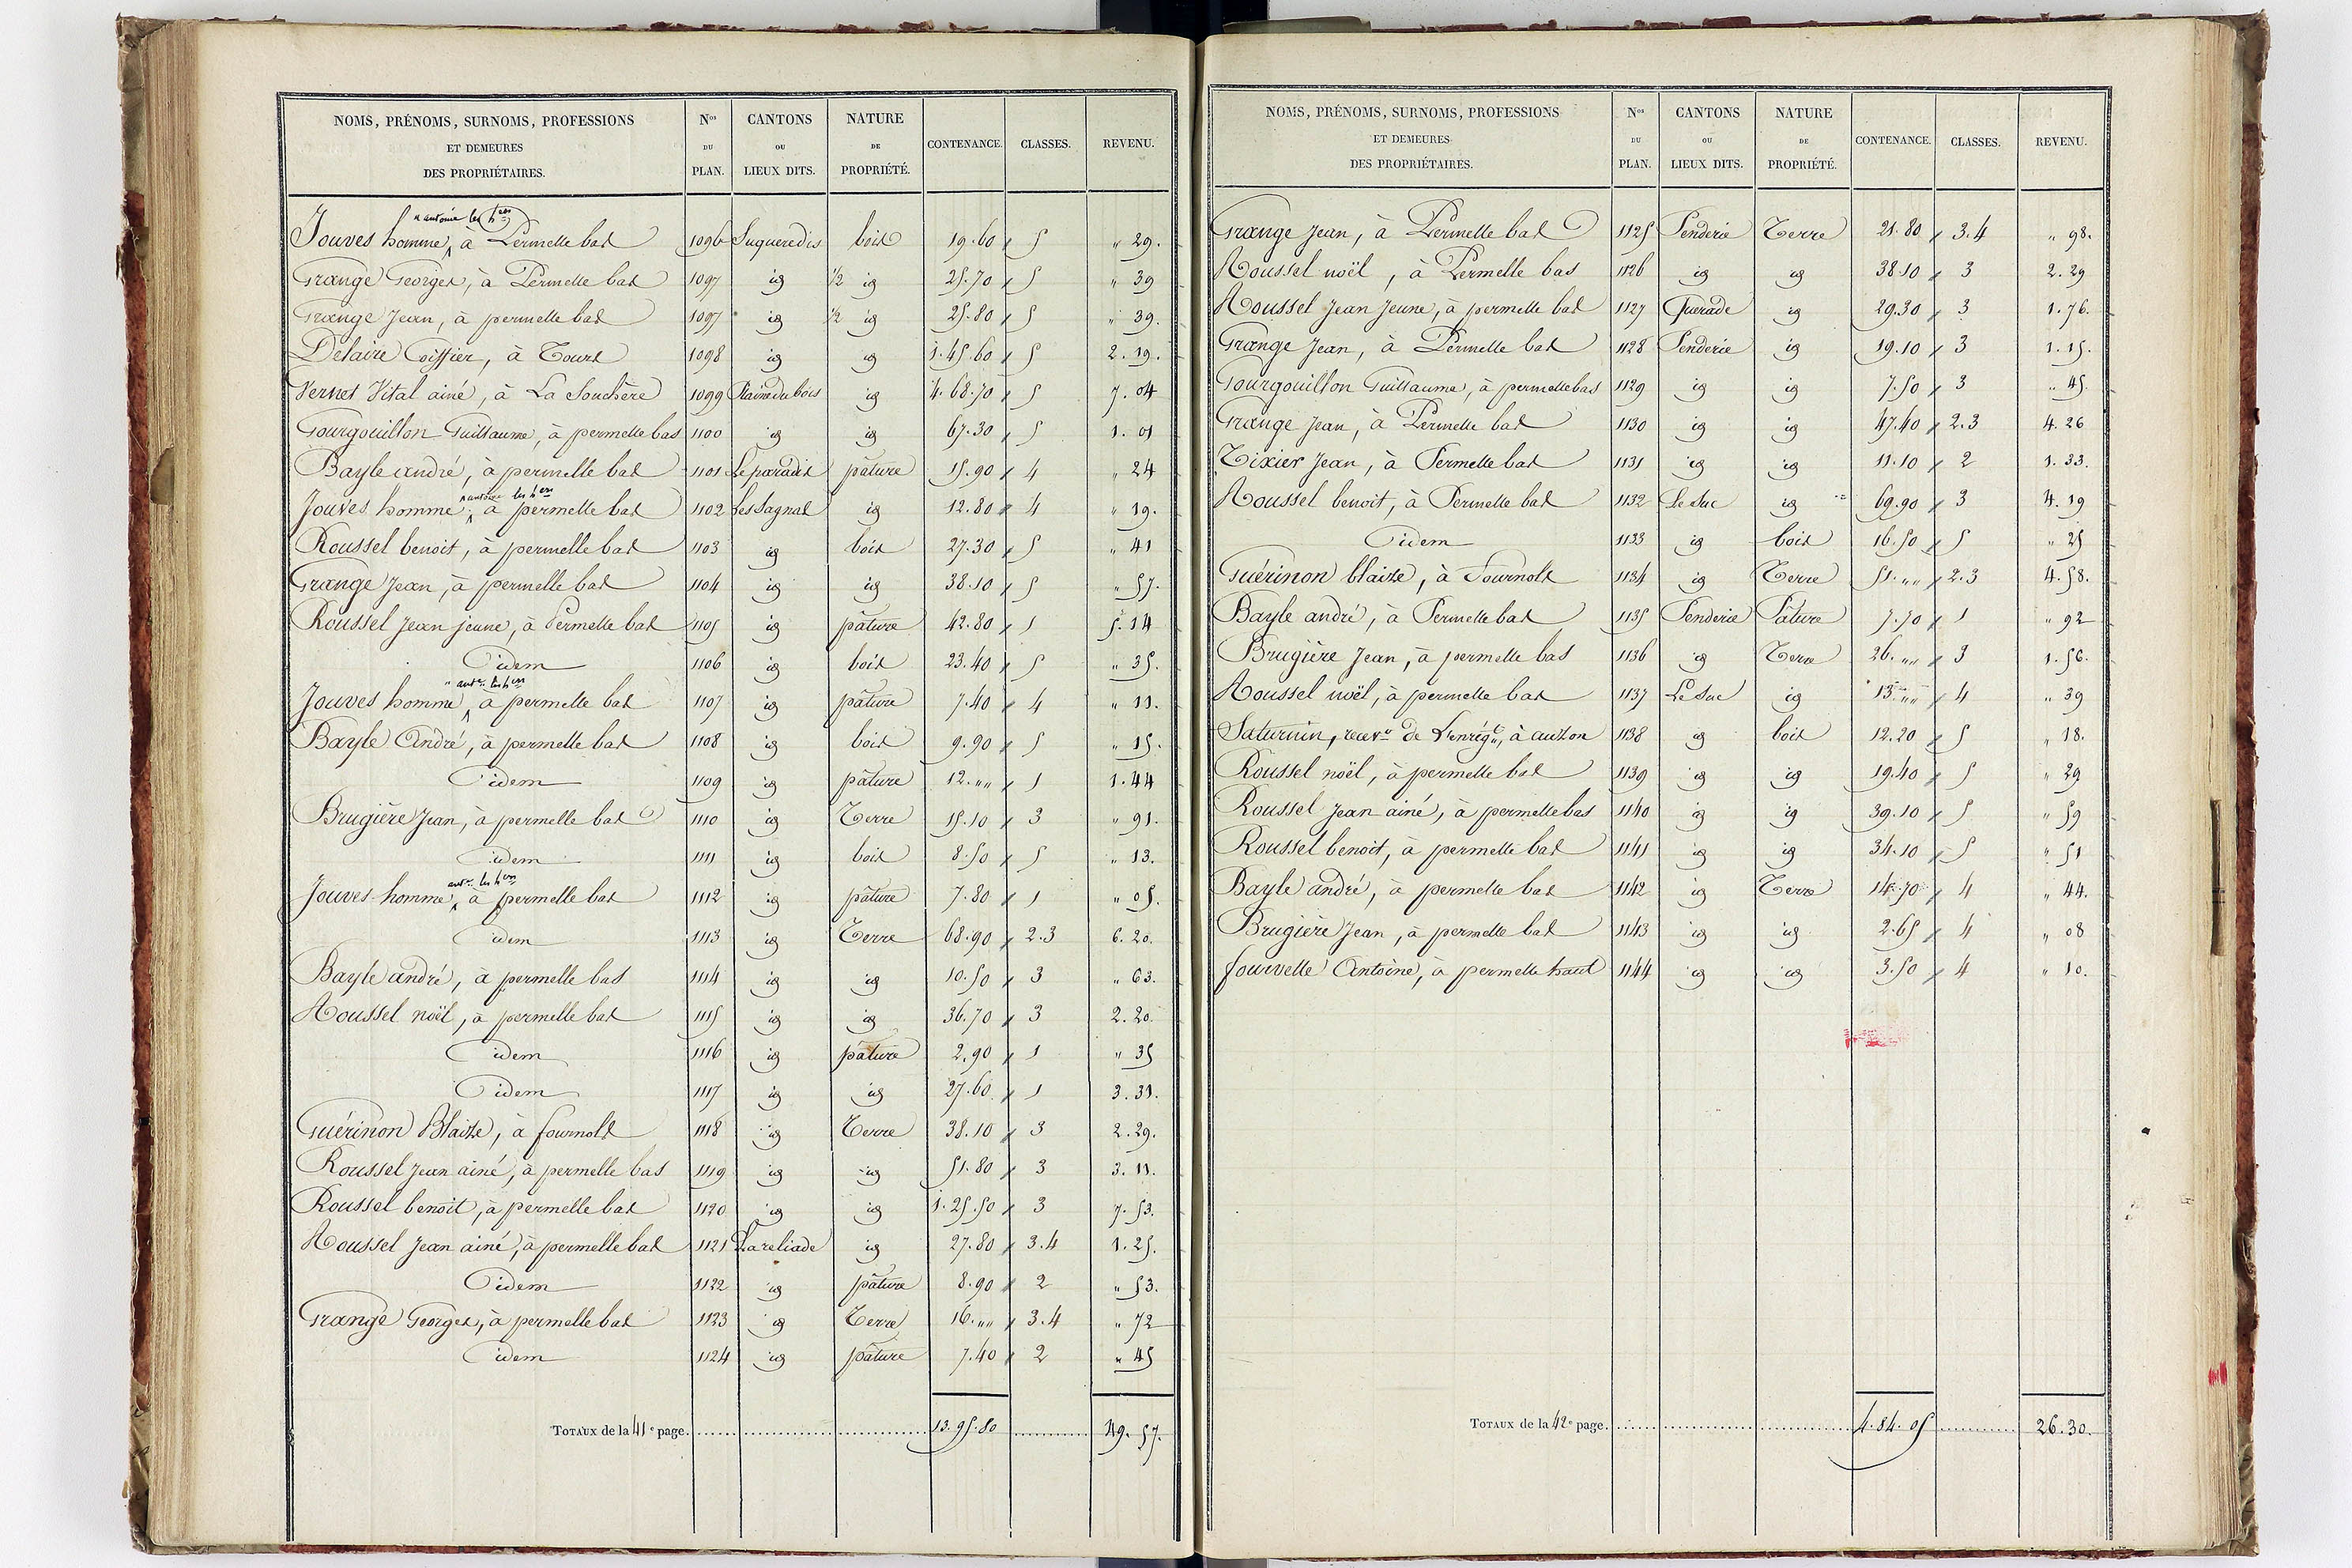 NOMS, PRÉNOMS, SURNOMS, PROFESSIONS ET DEMEURES DES PROPRIÉTAIRES. | Nos DU PLAN. | CANTONS OU LIEUX DITS. | NATURE DE PROPRIÉTÉ. | CONTENANCE. | CLASSES. | REVENU.
" antoine les hers
Jouves homme, à Permelle bas 1096 Suqueredis bois 19.60 5 " 29.
Grange Georges, à Permelle bas 1097 id ½ id 25.70 5 " 39
Grange Jean, à permelle bas 1097 id ½ id 25.80 5 " 39.
Delaire Coiffier, à Tours 1098 id id 1.45.60 5 2.19.
Vernet Vital ainé, à La Souchère 1099 Plaine du bois id 4.68.70 5 7.04
Gourgouillon Guillaume, à permelle bas 1100 id id 67.30 5 1.01
Bayle andré, à permelle bas 1101 Le paradis pâture 15.90 4 " 24
" antoine les hers
Jouves homme, à permelle bas 1102 Les Sagnas id 12.80 4 " 19.
Roussel benoit, à permelle bas 1103 id bois 27.30 5 " 41
Grange Jean, à permelle bas 1104 id id 38.10 5 " 57.
Roussel Jean jeune, à Permelle bas 1105 id pâture 42.80 1 5.14
idem 1106 id bois 23.40 5 " 35.
" ant. les hers
Jouves homme, à permelle bas 1107 id pâture 7.40 4 " 11.
Bayle André, à permelle bas 1108 id bois 9.90 5 " 15.
idem 1109 id pâture 12. "" 1 1.44
Brugière Jean, à permelle bas 1110 id Terre 15.10 3 " 91.
idem 1111 id bois 8.50 5 " 13.
ant. les hers
Jouves homme, à permelle bas 1112 id pâture 7.80 1 " 05.
idem 1113 id Terre 68.90 2.3 6.20.
Bayle andré, à permelle bas 1114 id id 10.50 3 " 63.
Roussel noël, à permelle bas 1115 id id 36.70 3 2.20.
idem 1116 id pâture 2.90 1 " 35
idem 1117 id id 27.60 1 3.31.
Guérinon Blaise, à fournols 1118 id Terre 38.10 3 2.29.
Roussel Jean ainé, à permelle bas 1119 id id 51.80 3 3.11.
Roussel benoit, à permelle bas 1120 id id 1.25.50 3 7.53.
Roussel Jean ainé, à permelle bas 1121 La reliade id 27.80 3.4 1.25.
idem 1122 id pâture 8.90 2 " 53.
Grange Georges, à permelle bas 1123 id Terre 16. "" 3.4 " 72
idem 1124 id pâture 7.40 2 " 45
TOTAUX de la 41e page. 13.95.80 49.57.
NOMS, PRÉNOMS, SURNOMS, PROFESSIONS ET DEMEURES DES PROPRIÉTAIRES. | Nos DU PLAN. | CANTONS OU LIEUX DITS. | NATURE DE PROPRIÉTÉ. | CONTENANCE. | CLASSES. | REVENU.
Grange Jean, à Permelle bas 1125 Penderie Terre 21.80 3.4 " 98.
Roussel noël, à Permelle bas 1126 id id 38.10 3 2.29
Roussel Jean Jeune, à permelle bas 1127 id 29.30 3 1.76.
Grange Jean, à Permelle bas 1128 Penderie id 19.10 3 1.15.
Gourgouillon Guillaume, à permelle bas 1129 id id 7.50 3 " 45.
Grange Jean, à Permelle bas 1130 id id 47.40 2.3 4.26
Tixier Jean, à Permelle bas 1131 id id 11.10 2 1.33.
Roussel benoit, à Permelle bas 1132 Le Suc id 69.90 3 4.19
idem 1133 id bois 16.50 5 " 25
Guérinon blaise, à Fournols 1134 id Terre 51. "" 2.3 4.58.
Bayle andré, à Permelle bas 1135 Penderie Pâture 7.70 1 " 92
Brugière Jean, à permelle bas 1136 id Terre 26. "" 3 1.56.
Roussel noël, à permelle bas 1137 Le Suc id 13 "" 4 " 39
Saturnin, recevr de L'enrégt, à auzon 1138 id bois 12.20 5 " 18.
Roussel noël, à permelle bas 1139 id id 19.40 5 " 29
Roussel Jean ainé, à permelle bas 1140 id id 39.10 5 " 59
Roussel benoit, à permelle bas 1141 id id 34.10 5 " 51
Bayle andré, à permelle bas 1142 id Terre 14.70 4 " 44.
Brugière Jean, à permelle bas 1143 id id 2.65 4 " 08
fourvelle Antoine, à permelle haut 1144 id id 3.50 4 " 10.
TOTAUX de la 42e page. 4.84.05 26.30.